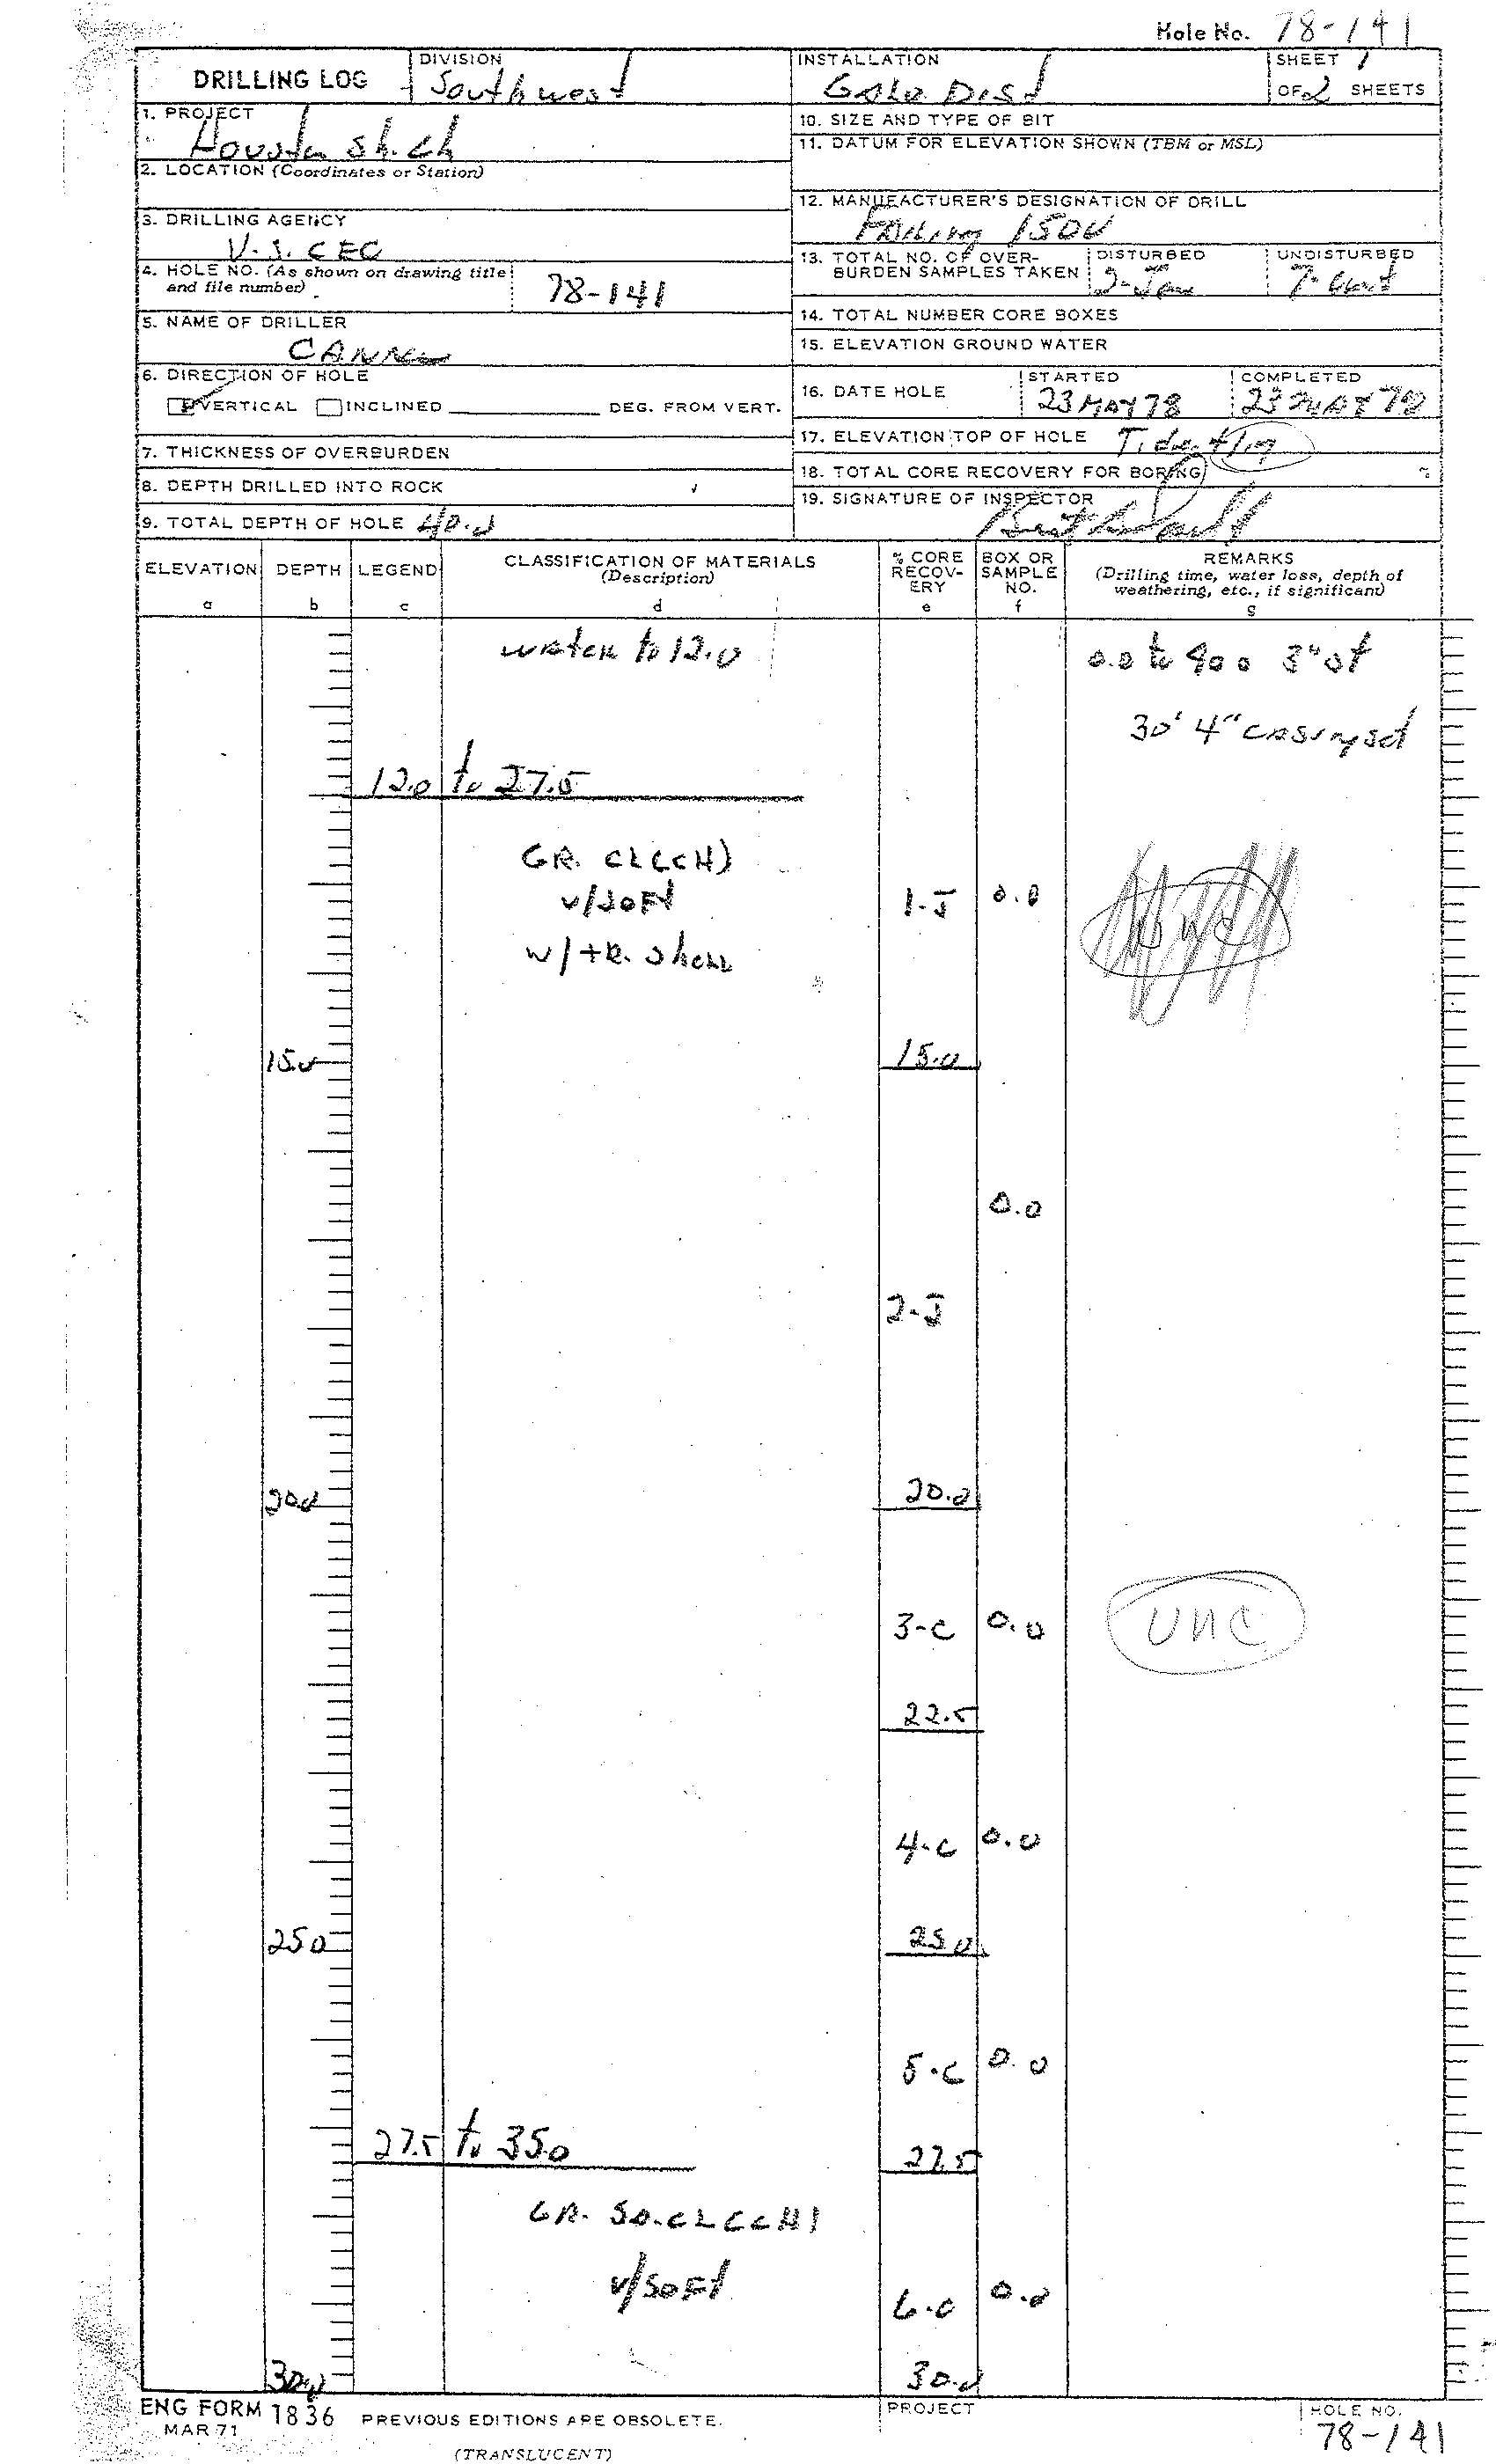 Hole No. 78-141
DRILLING LOG
DIVISION
Southwest
INSTALLATION
Galv Dist
SHEET 1
OF 2 SHEETS
1. PROJECT
Houston Sh. Ch
2. LOCATION (Coordinates or Station)
3. DRILLING AGENCY
U.S. CEC
4. HOLE NO. (As shown on drawing title
and file number)
78-141
5. NAME OF DRILLER
6. DIRECTION OF HOLE
VERTICAL INCLINED DEG. FROM VERT.
7. THICKNESS OF OVERBURDEN
8. DEPTH DRILLED INTO ROCK
9. TOTAL DEPTH OF HOLE 40.0
10. SIZE AND TYPE OF BIT
11. DATUM FOR ELEVATION SHOWN (TBM or MSL)
12. MANUFACTURER'S DESIGNATION OF DRILL
Failing 1500
13. TOTAL NO. OF OVER-
BURDEN SAMPLES TAKEN
DISTURBED
2-Jar
UNDISTURBED
14. TOTAL NUMBER CORE BOXES
15. ELEVATION GROUND WATER
16. DATE HOLE
STARTED
23 MAY 78
COMPLETED
23 MAY 78
17. ELEVATION TOP OF HOLE
18. TOTAL CORE RECOVERY FOR BORING %
19. SIGNATURE OF INSPECTOR
ELEVATION
a
DEPTH
b
LEGEND
c
CLASSIFICATION OF MATERIALS
(Description)
d
% CORE
RECOV-
ERY
e
BOX OR
SAMPLE
NO.
f
REMARKS
(Drilling time, water loss, depth of
weathering, etc., if significant)
g
WATER to 12.0
0.0 to 40.0 3" ST
30' 4" CASING SET
12.0 to 27.5
GR. CL(CH)
v/SOFT
w/TR. Shell
1-J 0.0
15.0 15.0
0.0
2-J
20.0 20.0
3-C 0.0 UNC
22.5
4-C 0.0
25.0 25.0
5-C 0.0
27.5 to 35.0
27.5
GR. SD.CL(CH)
v/SOFT
6-C 0.0
30.0 30.0
ENG FORM 1836
MAR 71
PREVIOUS EDITIONS ARE OBSOLETE.
(TRANSLUCENT)
PROJECT
HOLE NO.
78-141